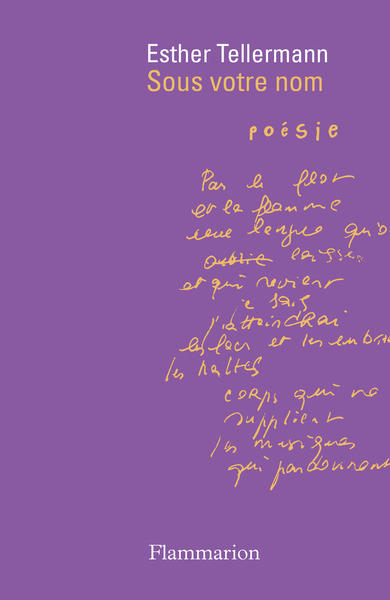 Esther Tellermann
Sous votre nom
poésie
Par le flot
et la flamme
une langue qu'o
oublie laisse
et qui revient
je sais
j'attendrai
les lacs et les
les haltes
corps qui ne
supplient
les musiques
qui pardonnent
Flammarion